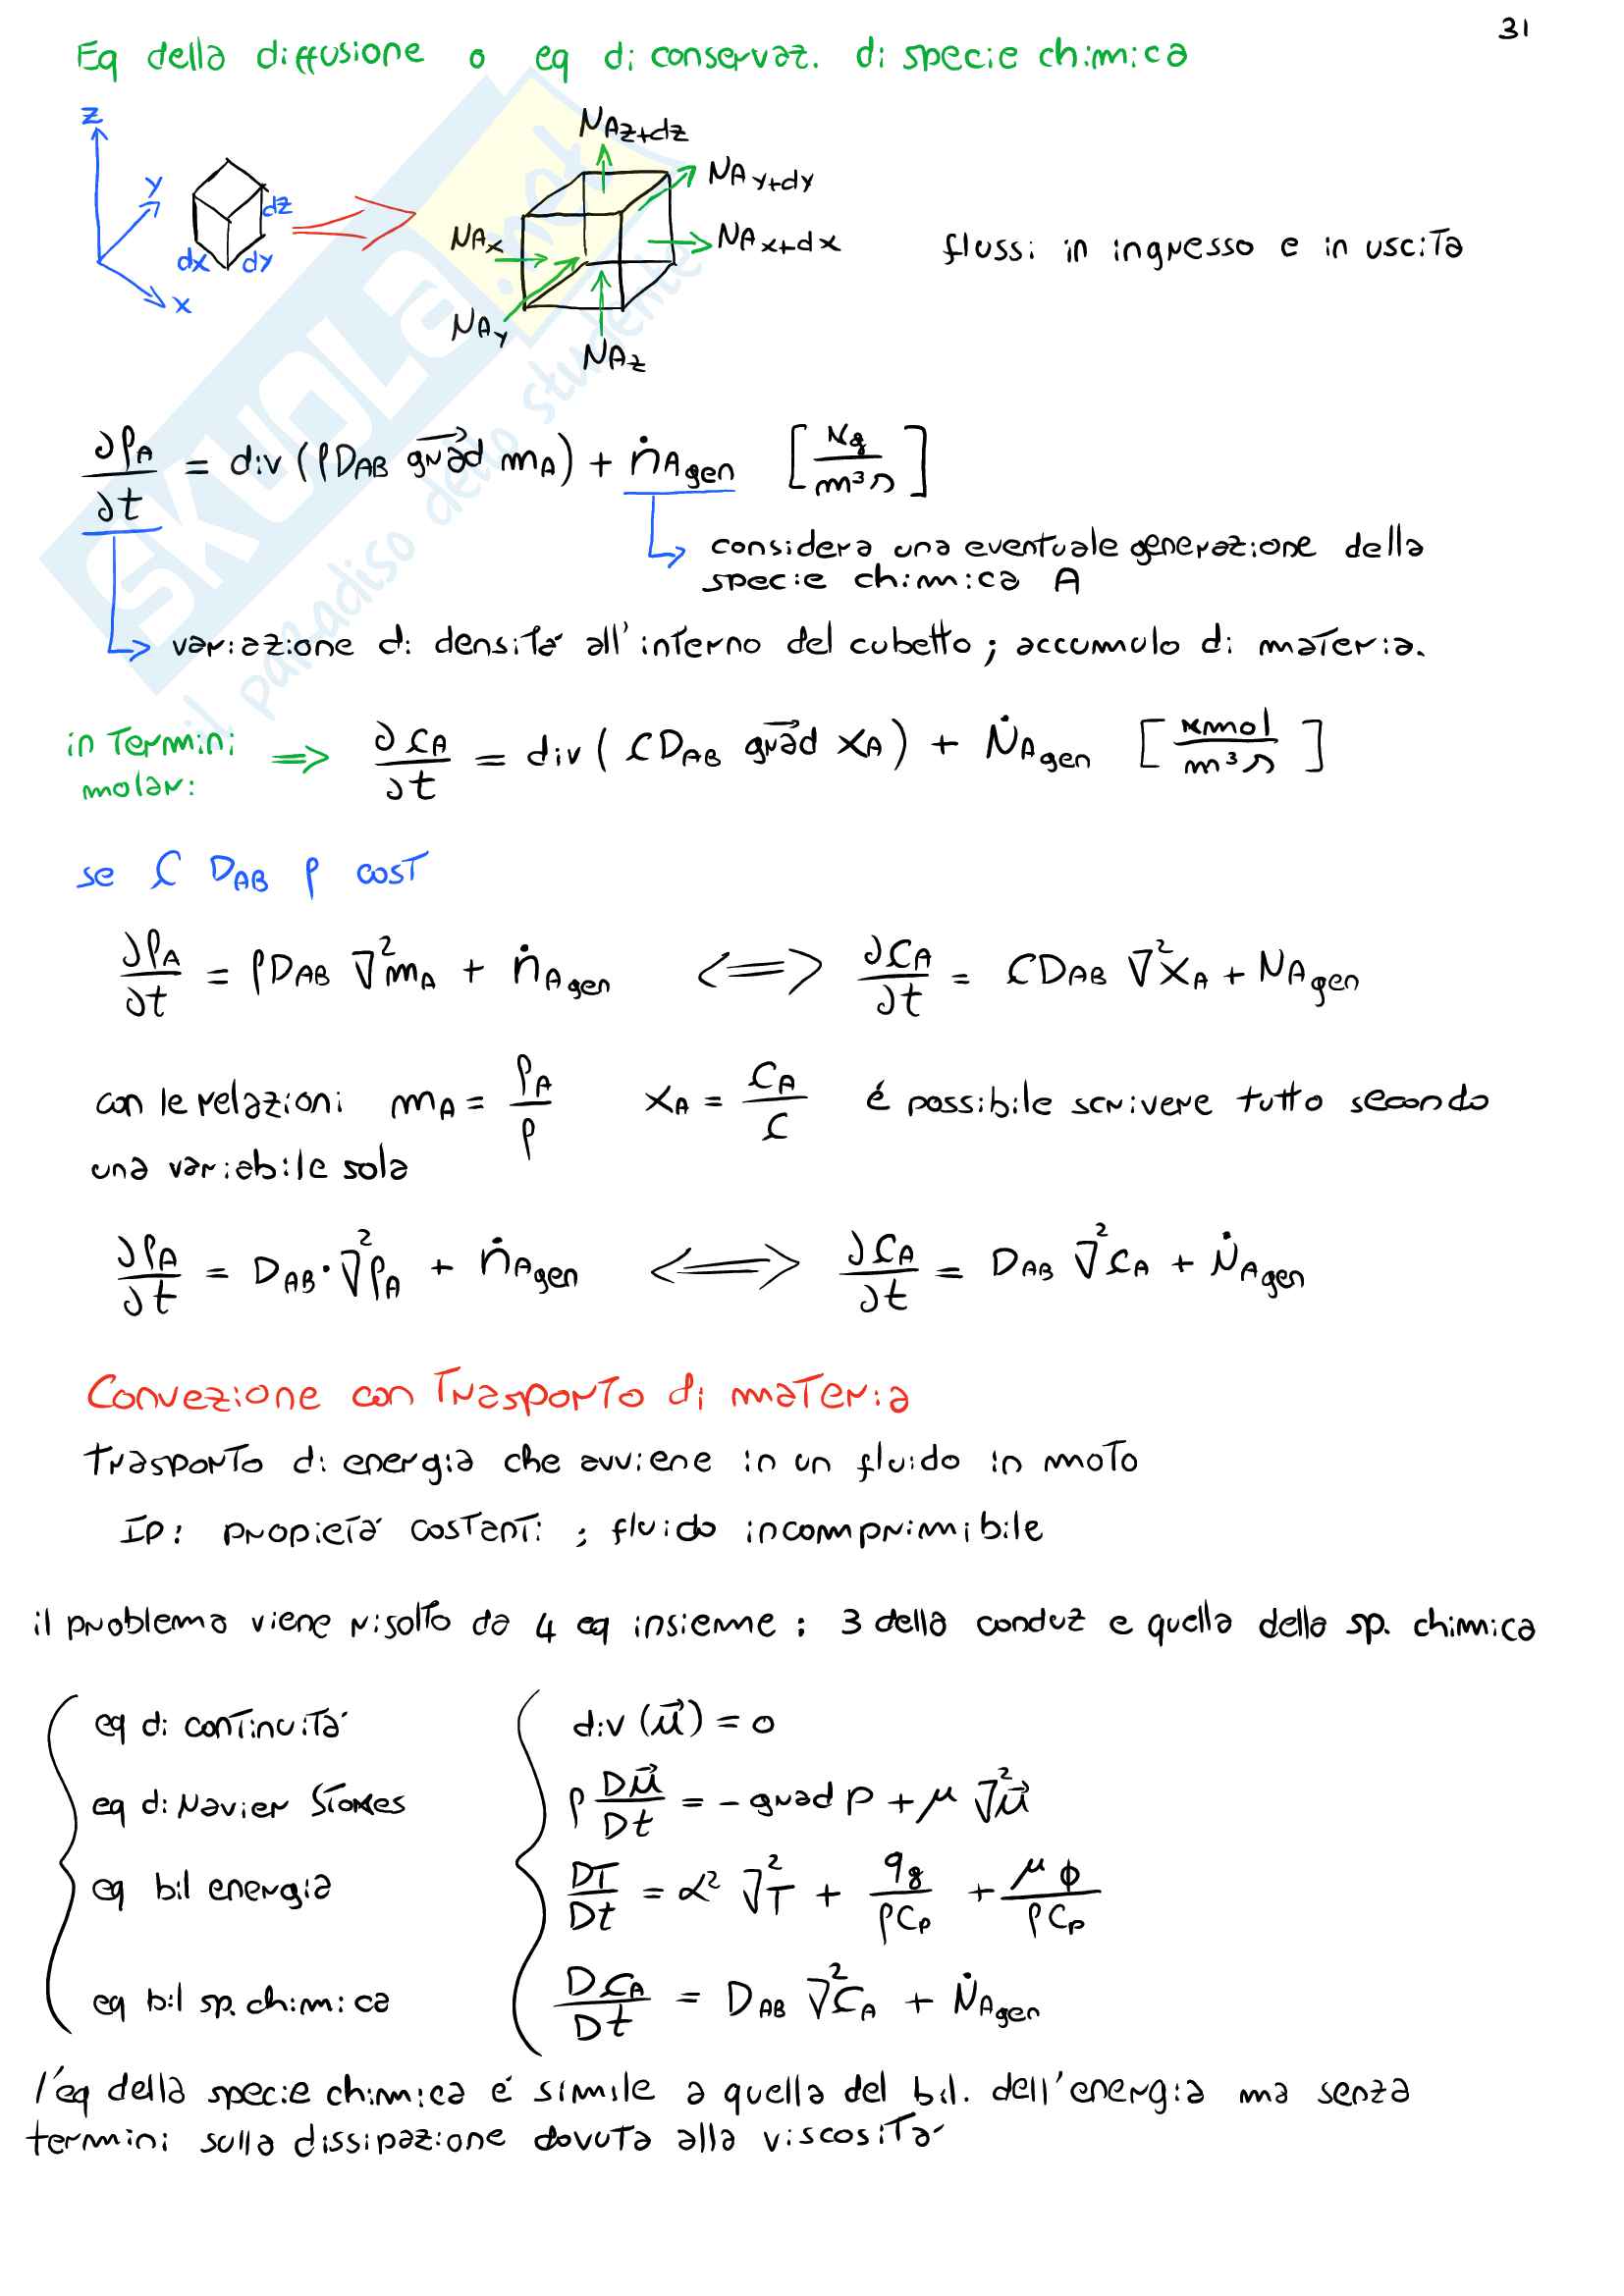 31
Eq della diffusione o eq di conservaz. di specie chimica
z
y
dz
dx
dy
x
NAz+dz
NAy+dy
NAx
NAx+dx
NAy
NAz
flussi in ingresso e in uscita
∂ρA/∂t = div (ρDAB grad mA) + ṅAgen [Kg/m³s]
considera una eventuale generazione della
specie chimica A
variazione di densità all'interno del cubetto ; accumulo di materia.
in termini
molari:
⇒ ∂CA/∂t = div ( CDAB grad xA ) + ṄAgen [kmol/m³s]
se C DAB ρ cost
∂ρA/∂t = ρDAB ∇²mA + ṅAgen ⇔ ∂CA/∂t = CDAB ∇²xA + NAgen
con le relazioni mA = ρA/ρ xA = CA/C é possibile scrivere tutto secondo
una variabile sola
∂ρA/∂t = DAB·∇²ρA + ṅAgen ⇔ ∂CA/∂t = DAB ∇²CA + ṄAgen
Convezione con Trasporto di materia
trasporto di energia che avviene in un fluido in moto
IP: propietà costanti ; fluido incomprimibile
il problema viene risolto da 4 eq insieme : 3 della conduz e quella della sp. chimica
eq di continuità div (u⃗) = 0
eq di Navier Stokes ρ Du⃗/Dt = - grad p + μ ∇²u⃗
eq bil energia DT/Dt = α² ∇²T + qg/ρCp + μϕ/ρCp
eq bil sp. chimica DCA/Dt = DAB ∇²CA + ṄAgen
l'eq della specie chimica é simile a quella del bil. dell'energia ma senza
termini sulla dissipazione dovuta alla viscosità
SKUOLA.net
il paradiso dello studente